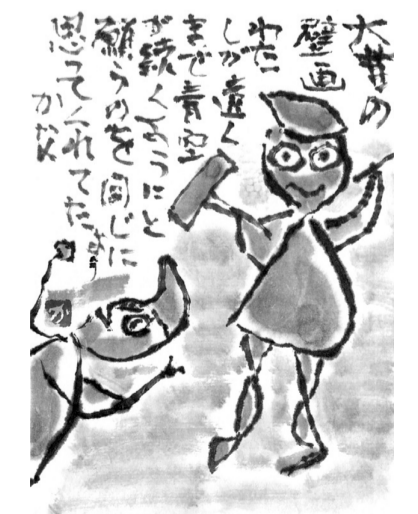 大昔の
壁画
わた
しが遠く
まで青空
が続くようにと
願うのを同じに
思ってくれてた
かな